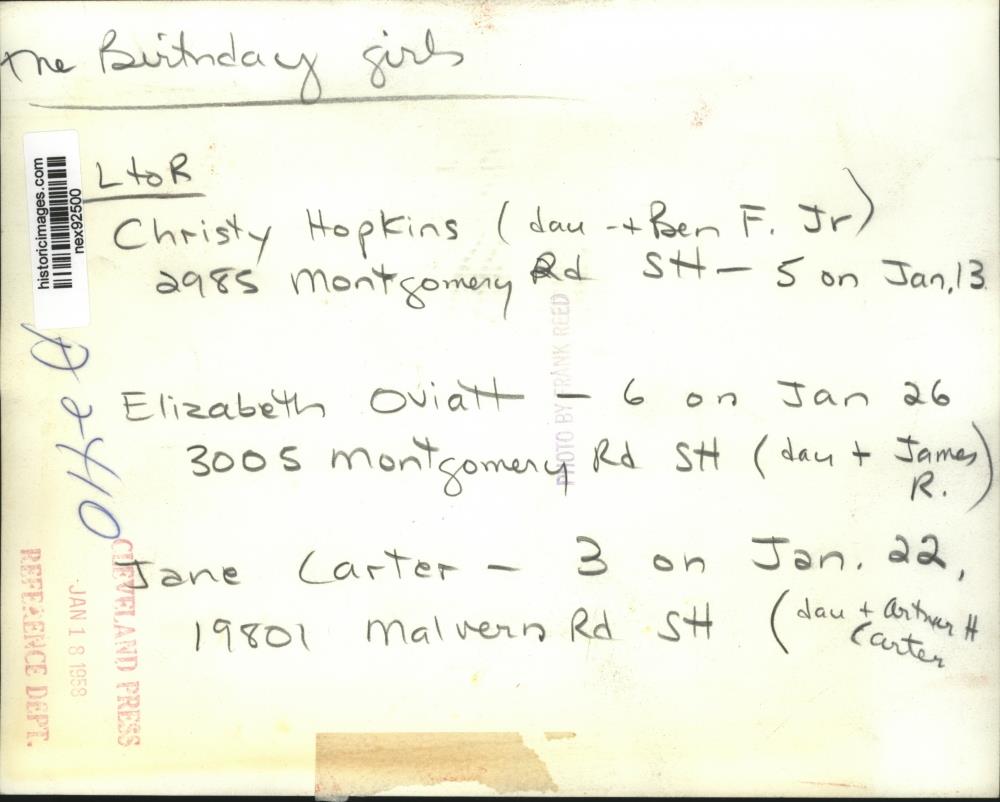 The Birthday girls
L to R
Christy Hopkins (dau -+ Ben F. Jr)
2985 Montgomery Rd SH - 5 on Jan, 13
Elizabeth Oviatt - 6 on Jan 26
3005 Montgomery Rd SH (dau + James
R.)
Jane Carter - 3 on Jan. 22,
19801 Malvern Rd SH (dau + Arthur H
Carter
historicimages.com
nex92500
PHOTO BY FRANK REED
CLEVELAND PRESS
JAN 18 1958
REFERENCE DEPT.